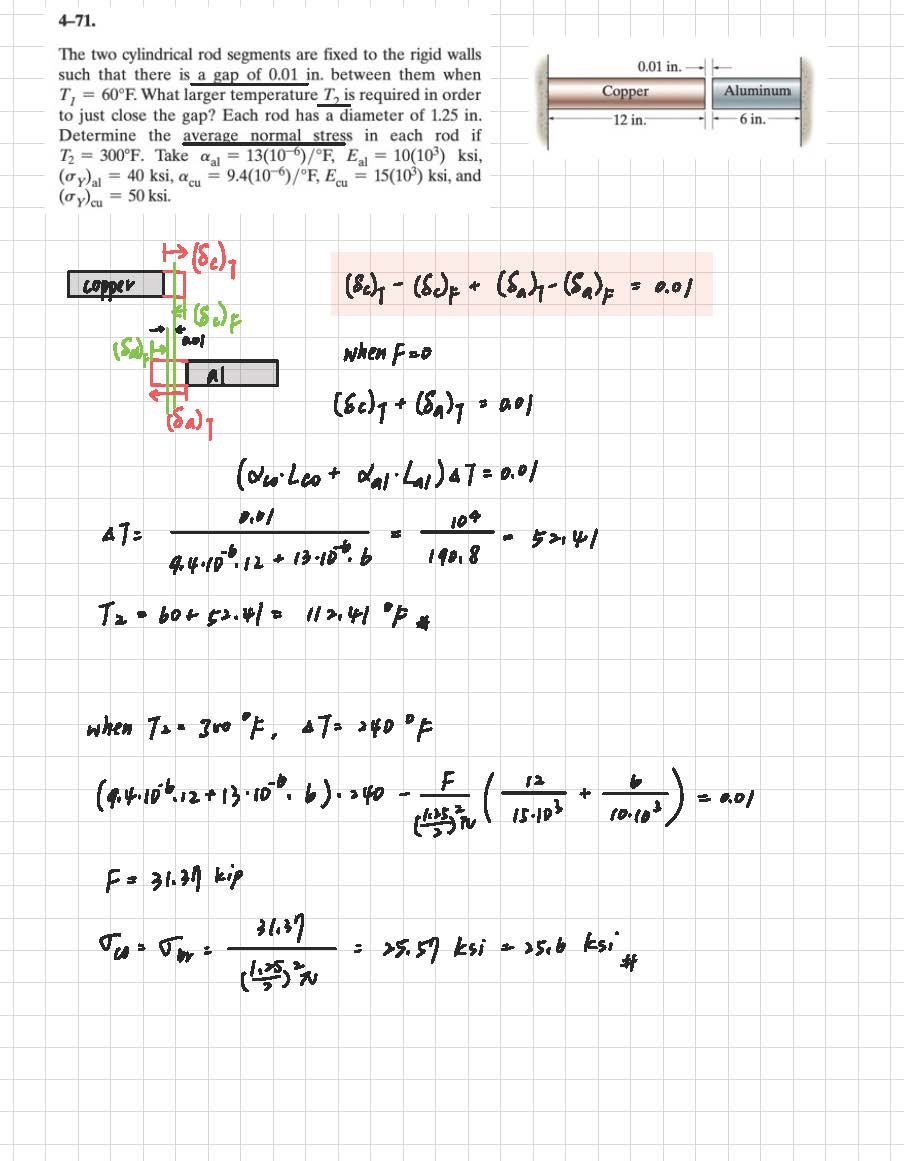 4–71.
The two cylindrical rod segments are fixed to the rigid walls
such that there is a gap of 0.01 in. between them when
T₁ = 60°F. What larger temperature T₂ is required in order
to just close the gap? Each rod has a diameter of 1.25 in.
Determine the average normal stress in each rod if
T₂ = 300°F. Take α_al = 13(10⁻⁶)/°F, E_al = 10(10³) ksi,
(σ_Y)_al = 40 ksi, α_cu = 9.4(10⁻⁶)/°F, E_cu = 15(10³) ksi, and
(σ_Y)_cu = 50 ksi.
0.01 in.
Copper
Aluminum
12 in.
6 in.
(δc)T
copper
(δc)F
0.01
(δa)F
al
(δa)T
(δc)T - (δc)F + (δa)T - (δa)F = 0.01
when F=0
(δc)T + (δa)T = 0.01
(αco·Lco + αal·Lal)ΔT = 0.01
ΔT = 0.01 / (9.4·10⁻⁶·12 + 13·10⁻⁶·6) = 10⁴ / 190.8 = 52.41
T₂ = 60 + 52.41 = 112.41 °F #
when T₂ = 300 °F, ΔT = 240 °F
(9.4·10⁻⁶·12 + 13·10⁻⁶·6)·240 - F / ((1.25/2)²π) (12 / 15·10³ + 6 / 10·10³) = 0.01
F = 31.37 kip
σco = σbr = 31.37 / ((1.25/2)²π) = 25.57 ksi = 25.6 ksi #